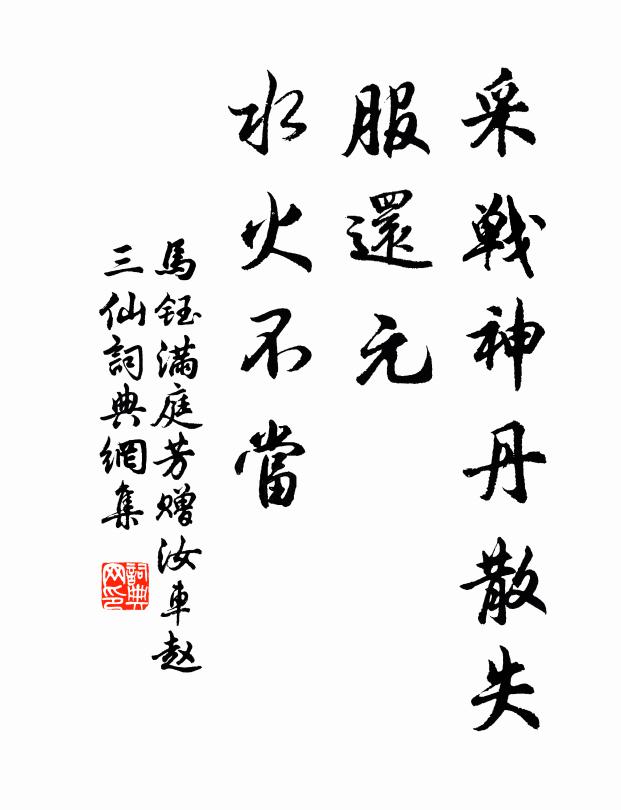 采戰神丹散失
服還元
水火不當
馬鈺滿庭芳赠汝車赵
三仙詞典網集
詞典
网印